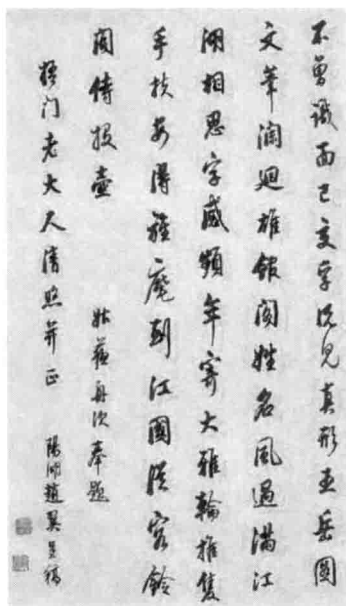 不曾識面已交孚況見真形五岳圖
文筆瀾迴雄館閣姓名風過滿江
湖相思字滅頻年寄大雅輪推隻
手扶安得旌麾到江國從容鈴
閣侍投壺 姑蘇舟次奉題
梧门老大人清照并正 陽湖趙翼呈稿